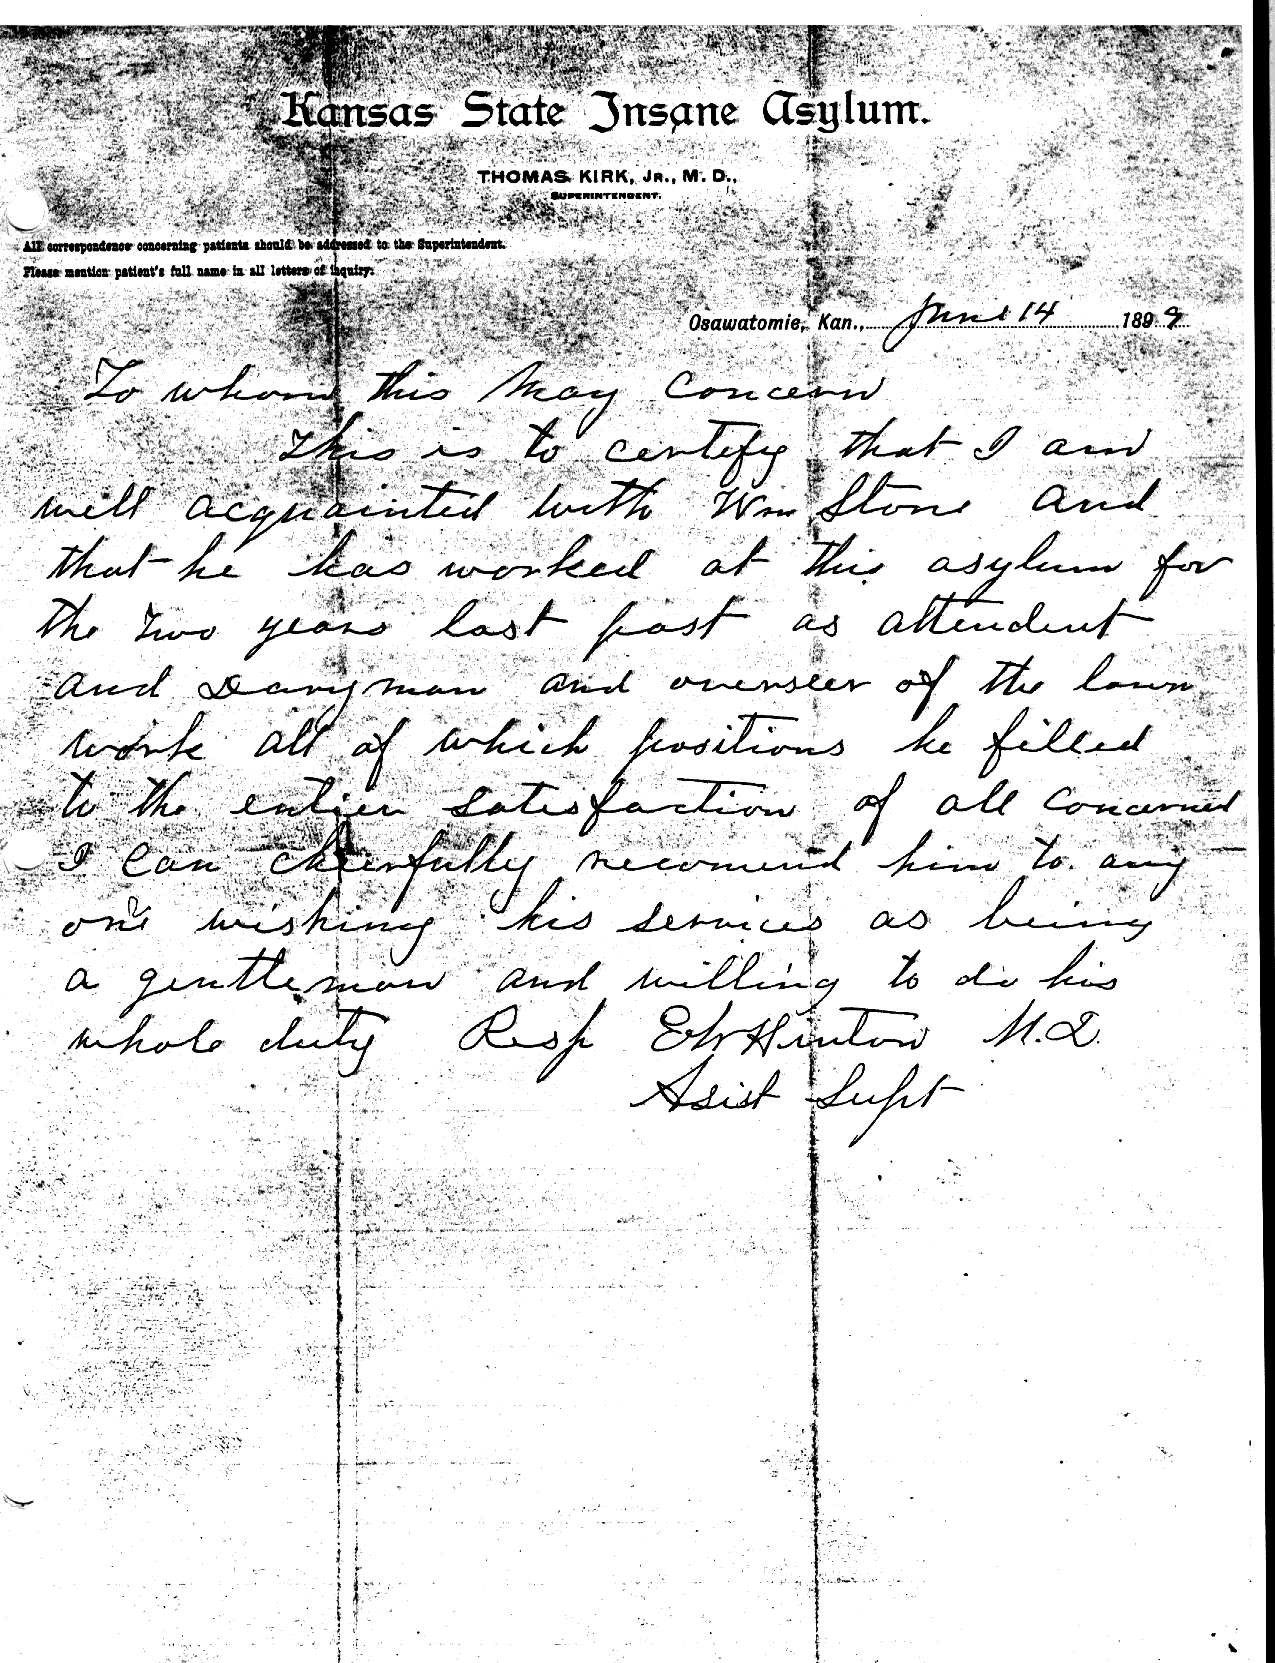 Kansas State Insane Asylum.
THOMAS KIRK, JR., M. D.,
SUPERINTENDENT.
All correspondence concerning patients should be addressed to the Superintendent.
Please mention patient's full name in all letters of inquiry.
Osawatomie, Kan., June 14 1899
To whom this may concern
This is to certify that I am
well acquainted with Wm Stone and
that he has worked at this asylum for
the two years last past as attendent
and Daryman and overseer of the lawn
work all of which positions he filled
to the entier satesfaction of all concerned
I can cheerfully recomend him to any
one wishing his services as being
a gentleman and willing to do his
whole duty Resp E W Hinton M.D.
Asist Supt